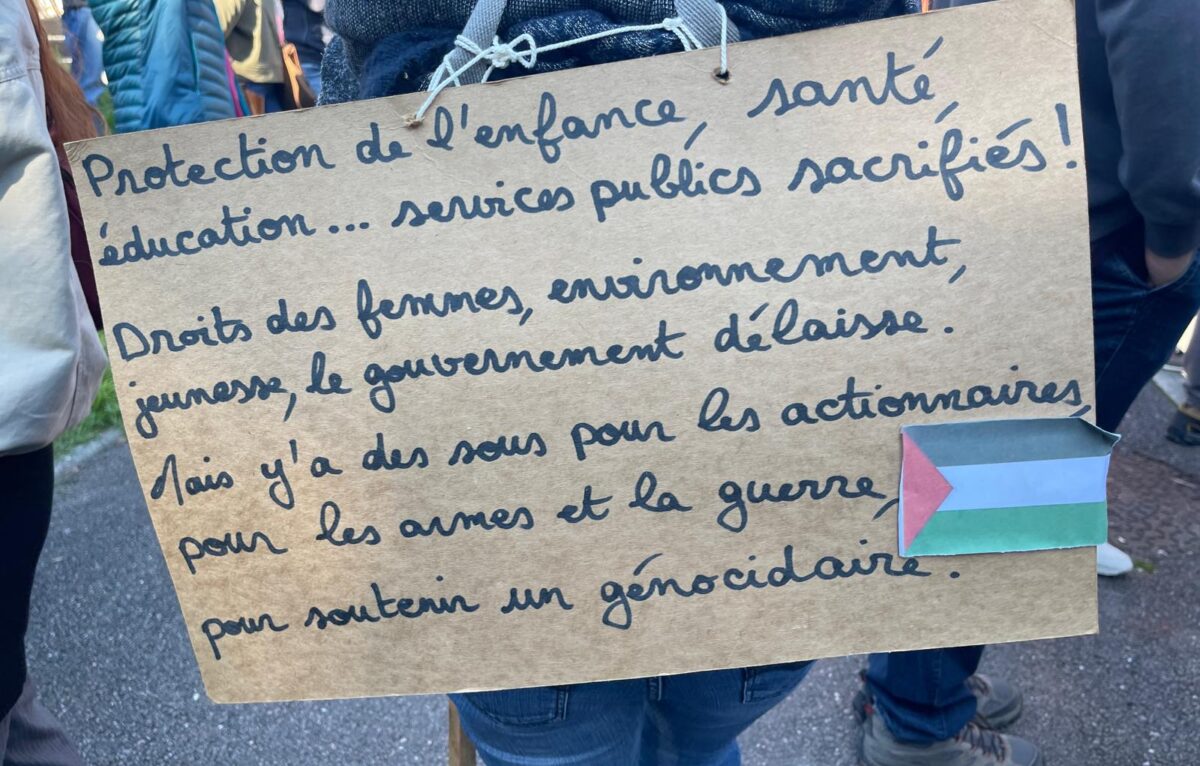 Protection de l'enfance, santé,
éducation... services publics sacrifiés !
Droits des femmes, environnement,
jeunesse, le gouvernement délaisse.
Mais y'a des sous pour les actionnaires,
pour les armes et la guerre,
pour soutenir un génocidaire.